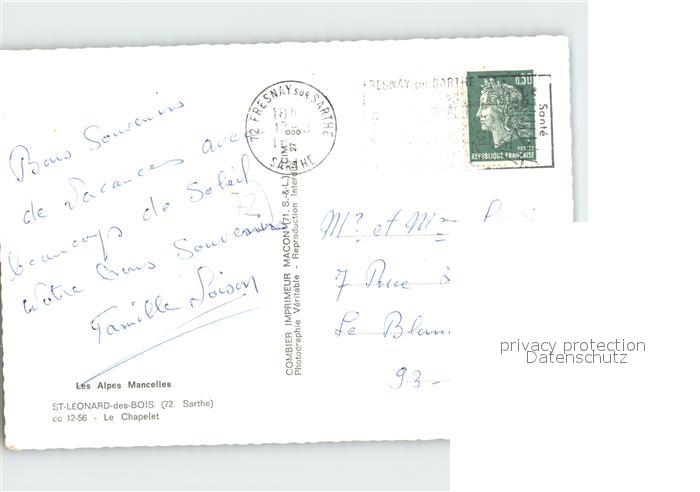 Bons Souvenirs
de Vacances avec
beaucoup de Soleil
Notre bons Souvenirs
Famille Loison
72
Les Alpes Mancelles
ST-LÉONARD-des-BOIS (72. Sarthe)
cc 12-56 - Le Chapelet
COMBIER IMPRIMEUR MACON (71. S.-&-L.)
Photographie Véritable - Reproduction Interdite
72 FRESNAY sur SARTHE
18H
SARTHE
FRESNAY sur SARTHE
Santé
0,30
POSTES
RÉPUBLIQUE FRANÇAISE
Mr et Mme
7 Rue
Le Blanc
93-
privacy protection
Datenschutz